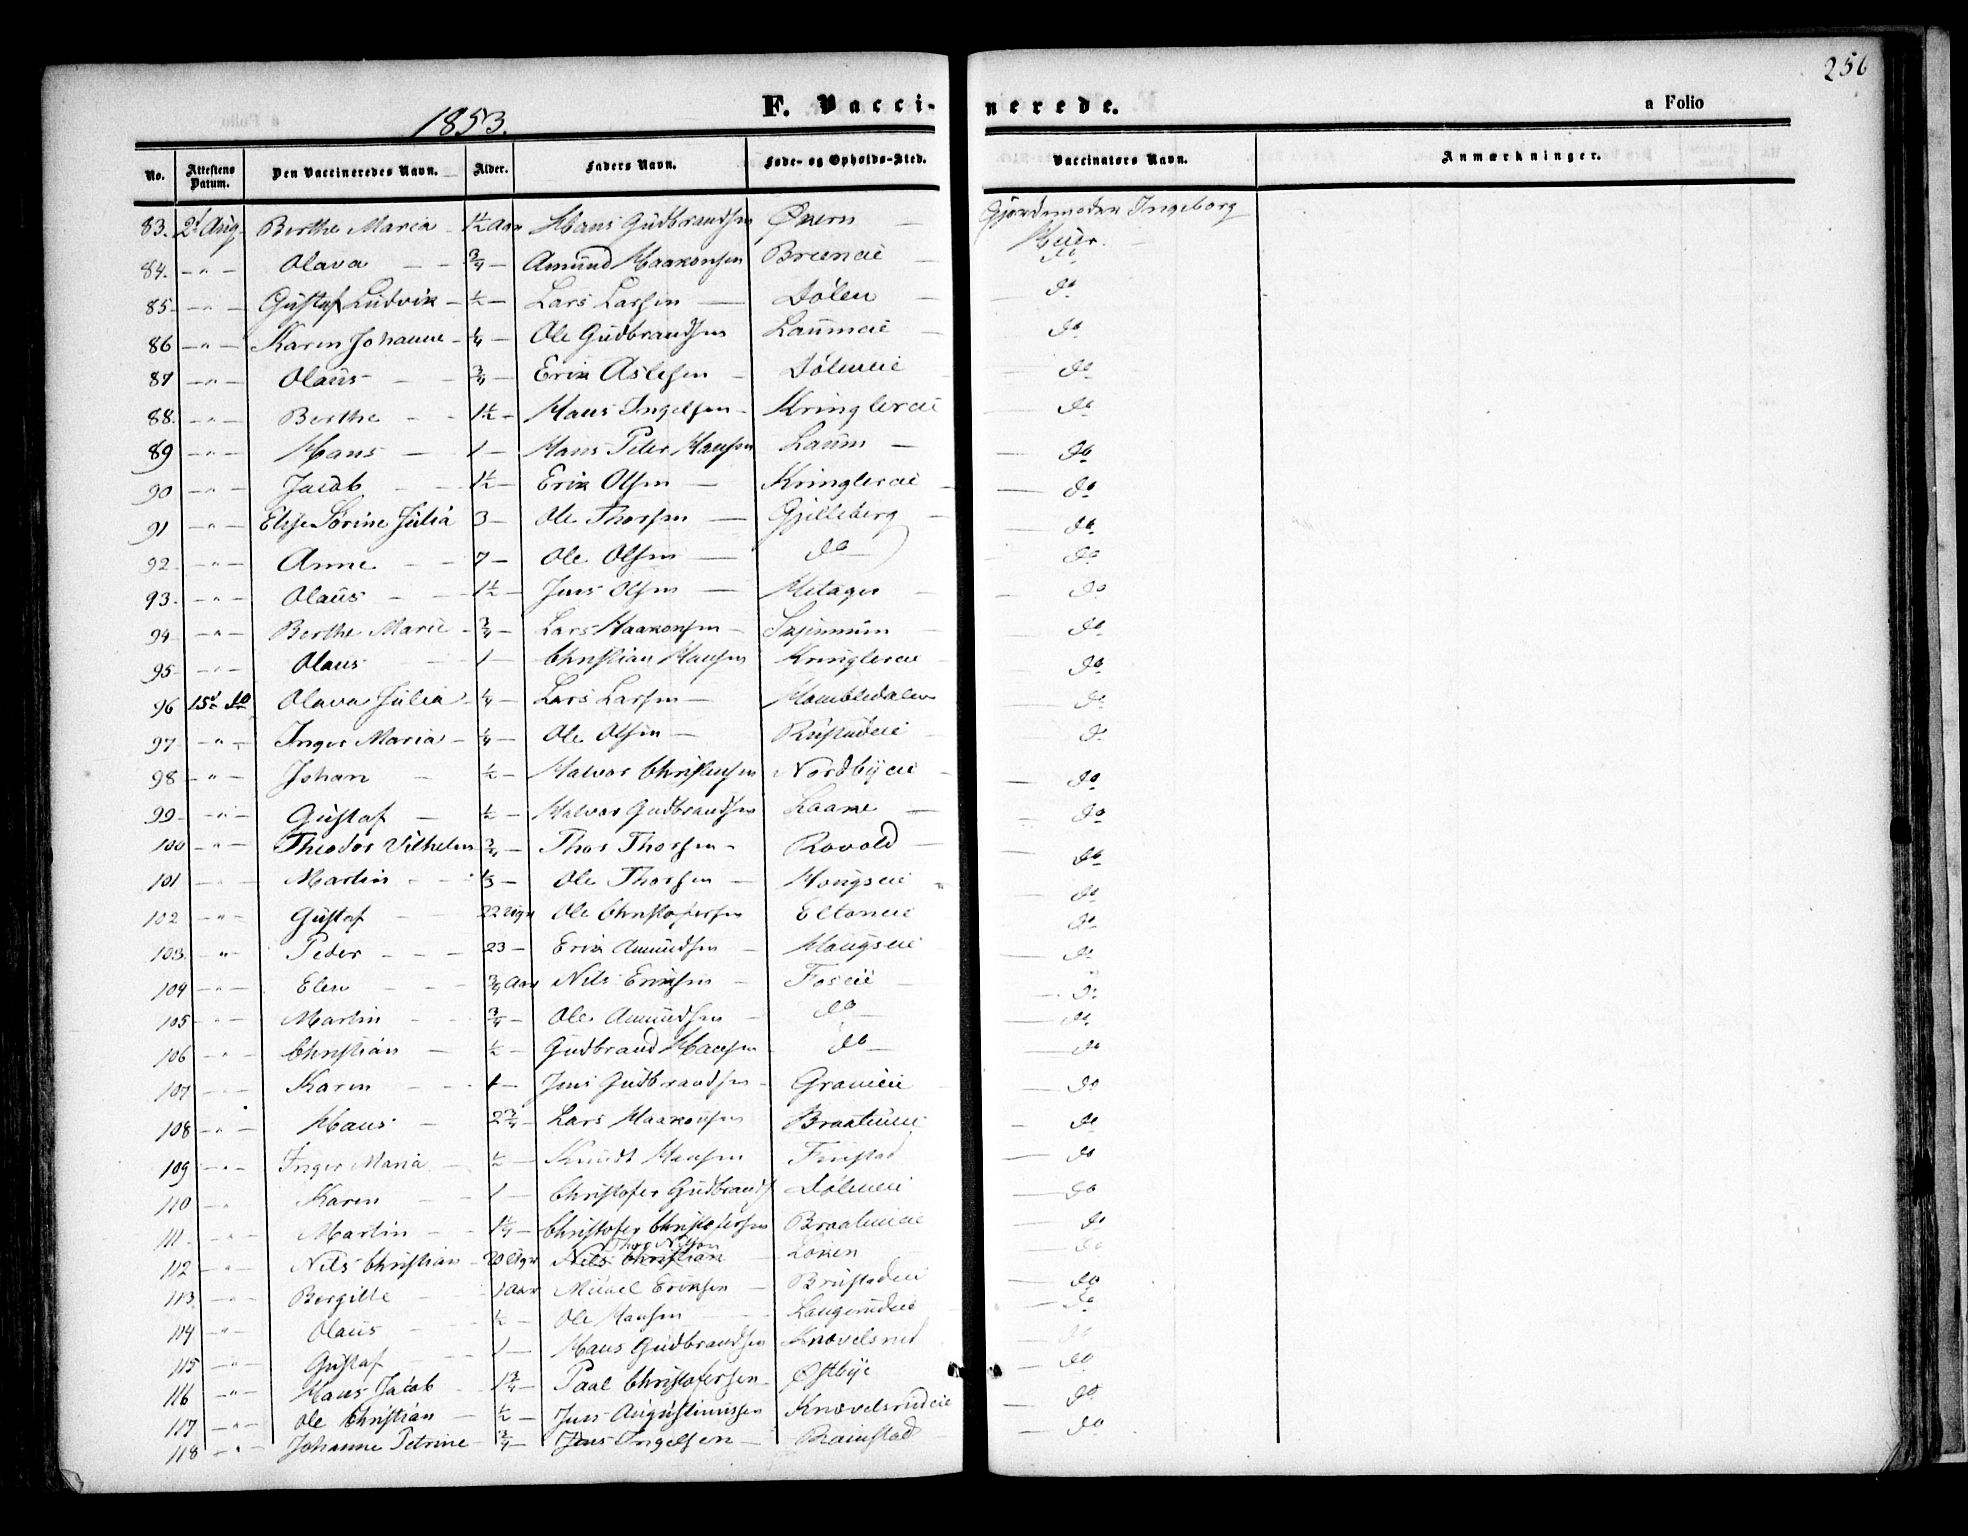 256
1853.
F. Vaccinerede.
a Folio
No. Attestens Datum. Den Vaccineredes Navn. Alder. Faders Navn. Føde- og Opholds-Sted. Vaccinators Navn. Anmærkninger.
83. 2d Aug Berthe Maria 1½ Aar Hans Gudbrandsen Øvern Gjordemoder Ingeborg Meier.
84. —"— Olava ¾ — Amund Haakonsen do
85. —"— Gustaf Ludvik ½ — Lars Larsen Dølen do
86 —"— Karen Johanne ¼ — Ole Gudbrandsen Laumeie do
87 —"— Olaus ¾ — Erik Aslesen Døleneie do
88. —"— Berthe 1½ — Hans Ingelsen Kringlereie do
89 —"— Hans 1 — Hans Peter Hansen Laum do
90 —"— Jacob 1½ — Erik Olsen Kringlereie do
91 —"— Elise Sørine Julia 3 — Ole Thorsen Gjelleberg do
92 —"— Anne 7 — Ole Olsen do do
93. —"— Olaus 1½ — Jens Olsen do
94 —"— Berthe Marie ¾ — Lars Haakonsen Skjennum do
95 —"— Olaus 1 — Christian Hansen Kringlereie do
96 15d do Olava Julia ¼ — Lars Larsen do
97 —"— Inger Maria ¼ — Ole Olsen do
98 —"— Johan ½ — Halvor Christensen Nordbyeie do
99 —"— Gustaf ½ — Halvor Gudbrandsen Laake do
100 —"— Theodor Vilhelm ¾ — Thor Thorsen Rovold do
101 —"— Martin ⅓ — Ole Thorsen Hougseie do
102 —"— Gustaf 22 Uger Ole Christofersen Eltoneie do
103. —"— Peder 23 — Erik Amundsen Hougseie do
104 —"— Elen ¾ Aar Nils Eriksen Foseie do
105 —"— Martin ¾ — Ole Amundsen do do
106 —"— Christian ½ — Gudbrand Hansen do do
107 —"— Karen 1 — Jens Gudbrandsen do
108 —"— Hans 2¾ — Lars Haakonsen Braateneie do
109 —"— Inger Maria ½ — Knudt Hansen Finstad do
110 —"— Karen 1 — Christofer Gudbrands Døleneie do
111 —"— Martin 1¼ — Christofer Christofersen Braateneie do
112 —"— Nils Christian 20 Uger Nils Christian Løken do
113. —"— Bergitte 1 Aar Mickel Eriksen do
104 —"— Olaus ½ — Ole Hansen Langerudeie do
115 —"— Gustaf 1 — Hans Gudbrandsen Knævelsrud do
116 —"— Hans Jacob 1¾ — Paal Christofersen Østbye do
117 —"— Ole Christian ½ — Jens Augustinussen Knævelsrudeie do
118 —"— Johanne Petrine ¾ — Jens Ingelsen do